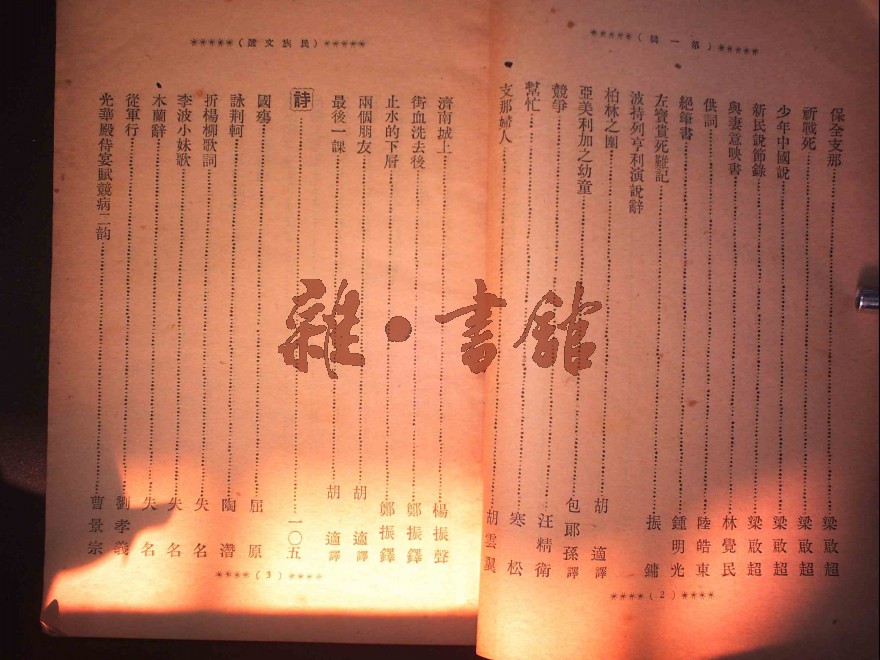 *****(第一輯)*****
保全支那……梁啟超
祈戰死……梁啟超
少年中國說……梁啟超
新民說節錄……梁啟超
與妻意映書……林覺民
供詞……陸皓東
絕筆書……鍾明光
左寶貴死難記……振鏞
波持列亨利演說辭……
柏林之圍……胡適譯
亞美利加之幼童……包郎孫譯
競爭……汪精衛
幫忙……寒松
支那婦人……胡雲翼
****(2)****
*****(民族文選)*****
濟南城上……楊振聲
街血洗去後……鄭振鐸
止水的下層……鄭振鐸
兩個朋友……胡適譯
最後一課……胡適譯
詩……一〇五
國殤……屈原
詠荆軻……陶潛
折楊柳歌詞……失名
李波小妹歌……失名
木蘭辭……失名
從軍行……劉孝義
光華殿侍宴賦競病二韵……曹景宗
****(3)****
雜·書館